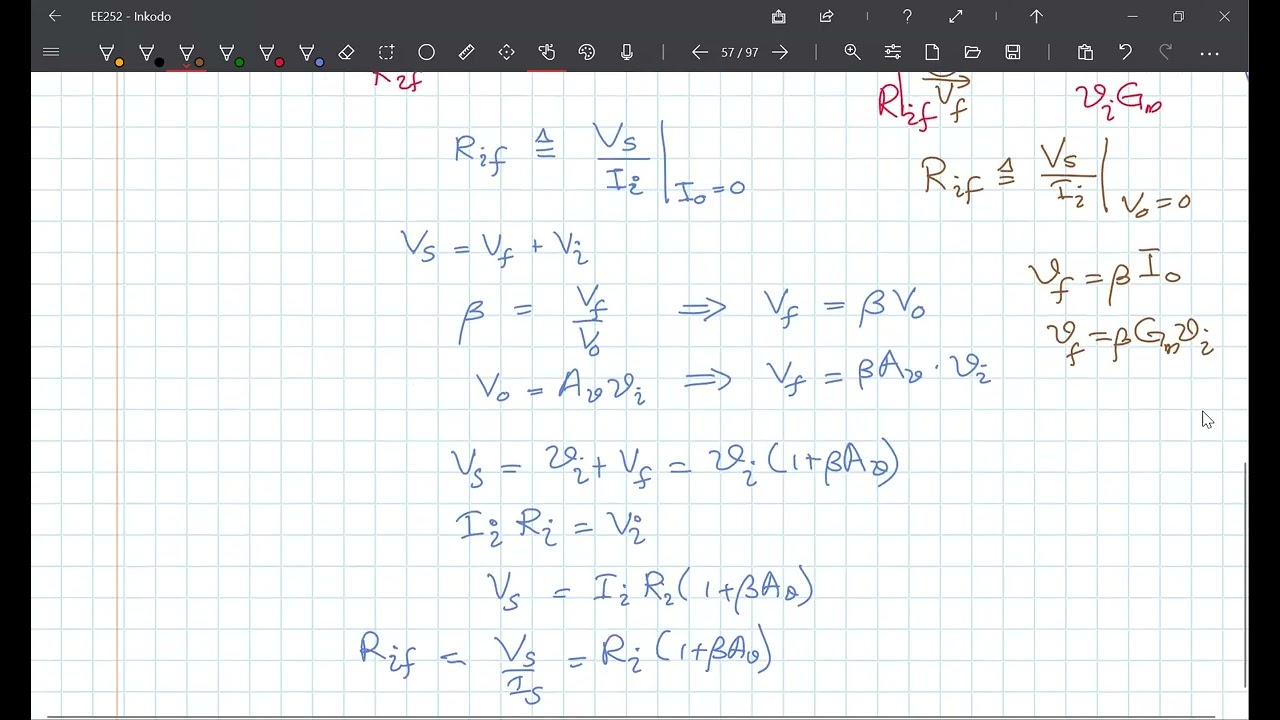 EE252 - Inkodo
57 / 97
R_if
R_if V_f
v_i G_m
R_if ≜ V_s / I_i | I_o = 0
V_s = V_f + V_i
β = V_f / V_o ⟹ V_f = β V_o
V_o = A_v v_i ⟹ V_f = β A_v · v_i
V_s = v_i + V_f = v_i (1 + β A_v)
I_i R_i = V_i
V_s = I_i R_i (1 + β A_v)
R_if = V_s / I_s = R_i (1 + β A_v)
R_if ≜ V_s / I_i | V_o = 0
v_f = β I_o
v_f = β G_m v_i